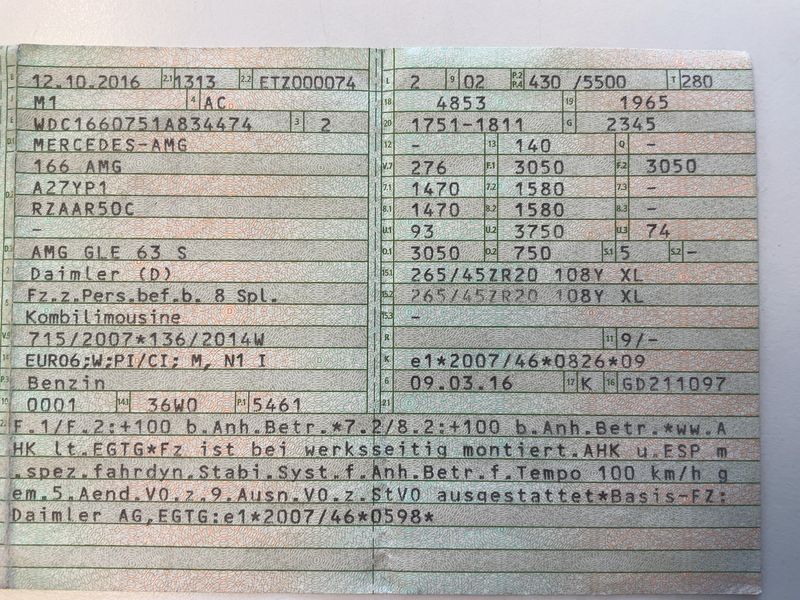 B 12.10.2016 2.1 1313 2.2 ETZ000074
J M1 4 AC
E WDC1660751A834474 3 2
D.1 MERCEDES-AMG
166 AMG
D.2 A27YP1
RZAAR50C
-
D.3 AMG GLE 63 S
2 Daimler (D)
5 Fz.z.Pers.bef.b. 8 Spl.
Kombilimousine
V.9 715/2007*136/2014W
14 EURO6;W;PI/CI; M, N1 I
P.3 Benzin
10 0001 14.1 36W0 P.1 5461
L 2 9 02 P.2 P.4 430 /5500 T 280
18 4853 19 1965
20 1751-1811 G 2345
12 - 13 140 Q -
V.7 276 F.1 3050 F.2 3050
7.1 1470 7.2 1580 7.3 -
8.1 1470 8.2 1580 8.3 -
U.1 93 U.2 3750 U.3 74
O.1 3050 O.2 750 S.1 5 S.2 -
15.1 265/45ZR20 108Y XL
15.2 265/45ZR20 108Y XL
15.3 -
R 11 9/-
K e1*2007/46*0826*09
6 09.03.16 17 K 16 GD211097
21
22 F.1/F.2:+100 b.Anh.Betr.*7.2/8.2:+100 b.Anh.Betr.*ww.A
HK lt.EGTG*Fz ist bei werksseitig montiert.AHK u.ESP m
.spez.fahrdyn.Stabi.Syst.f.Anh.Betr.f.Tempo 100 km/h g
em.5.Aend.VO.z.9.Ausn.VO.z.StVO ausgestattet*Basis-FZ:
Daimler AG,EGTG:e1*2007/46*0598*